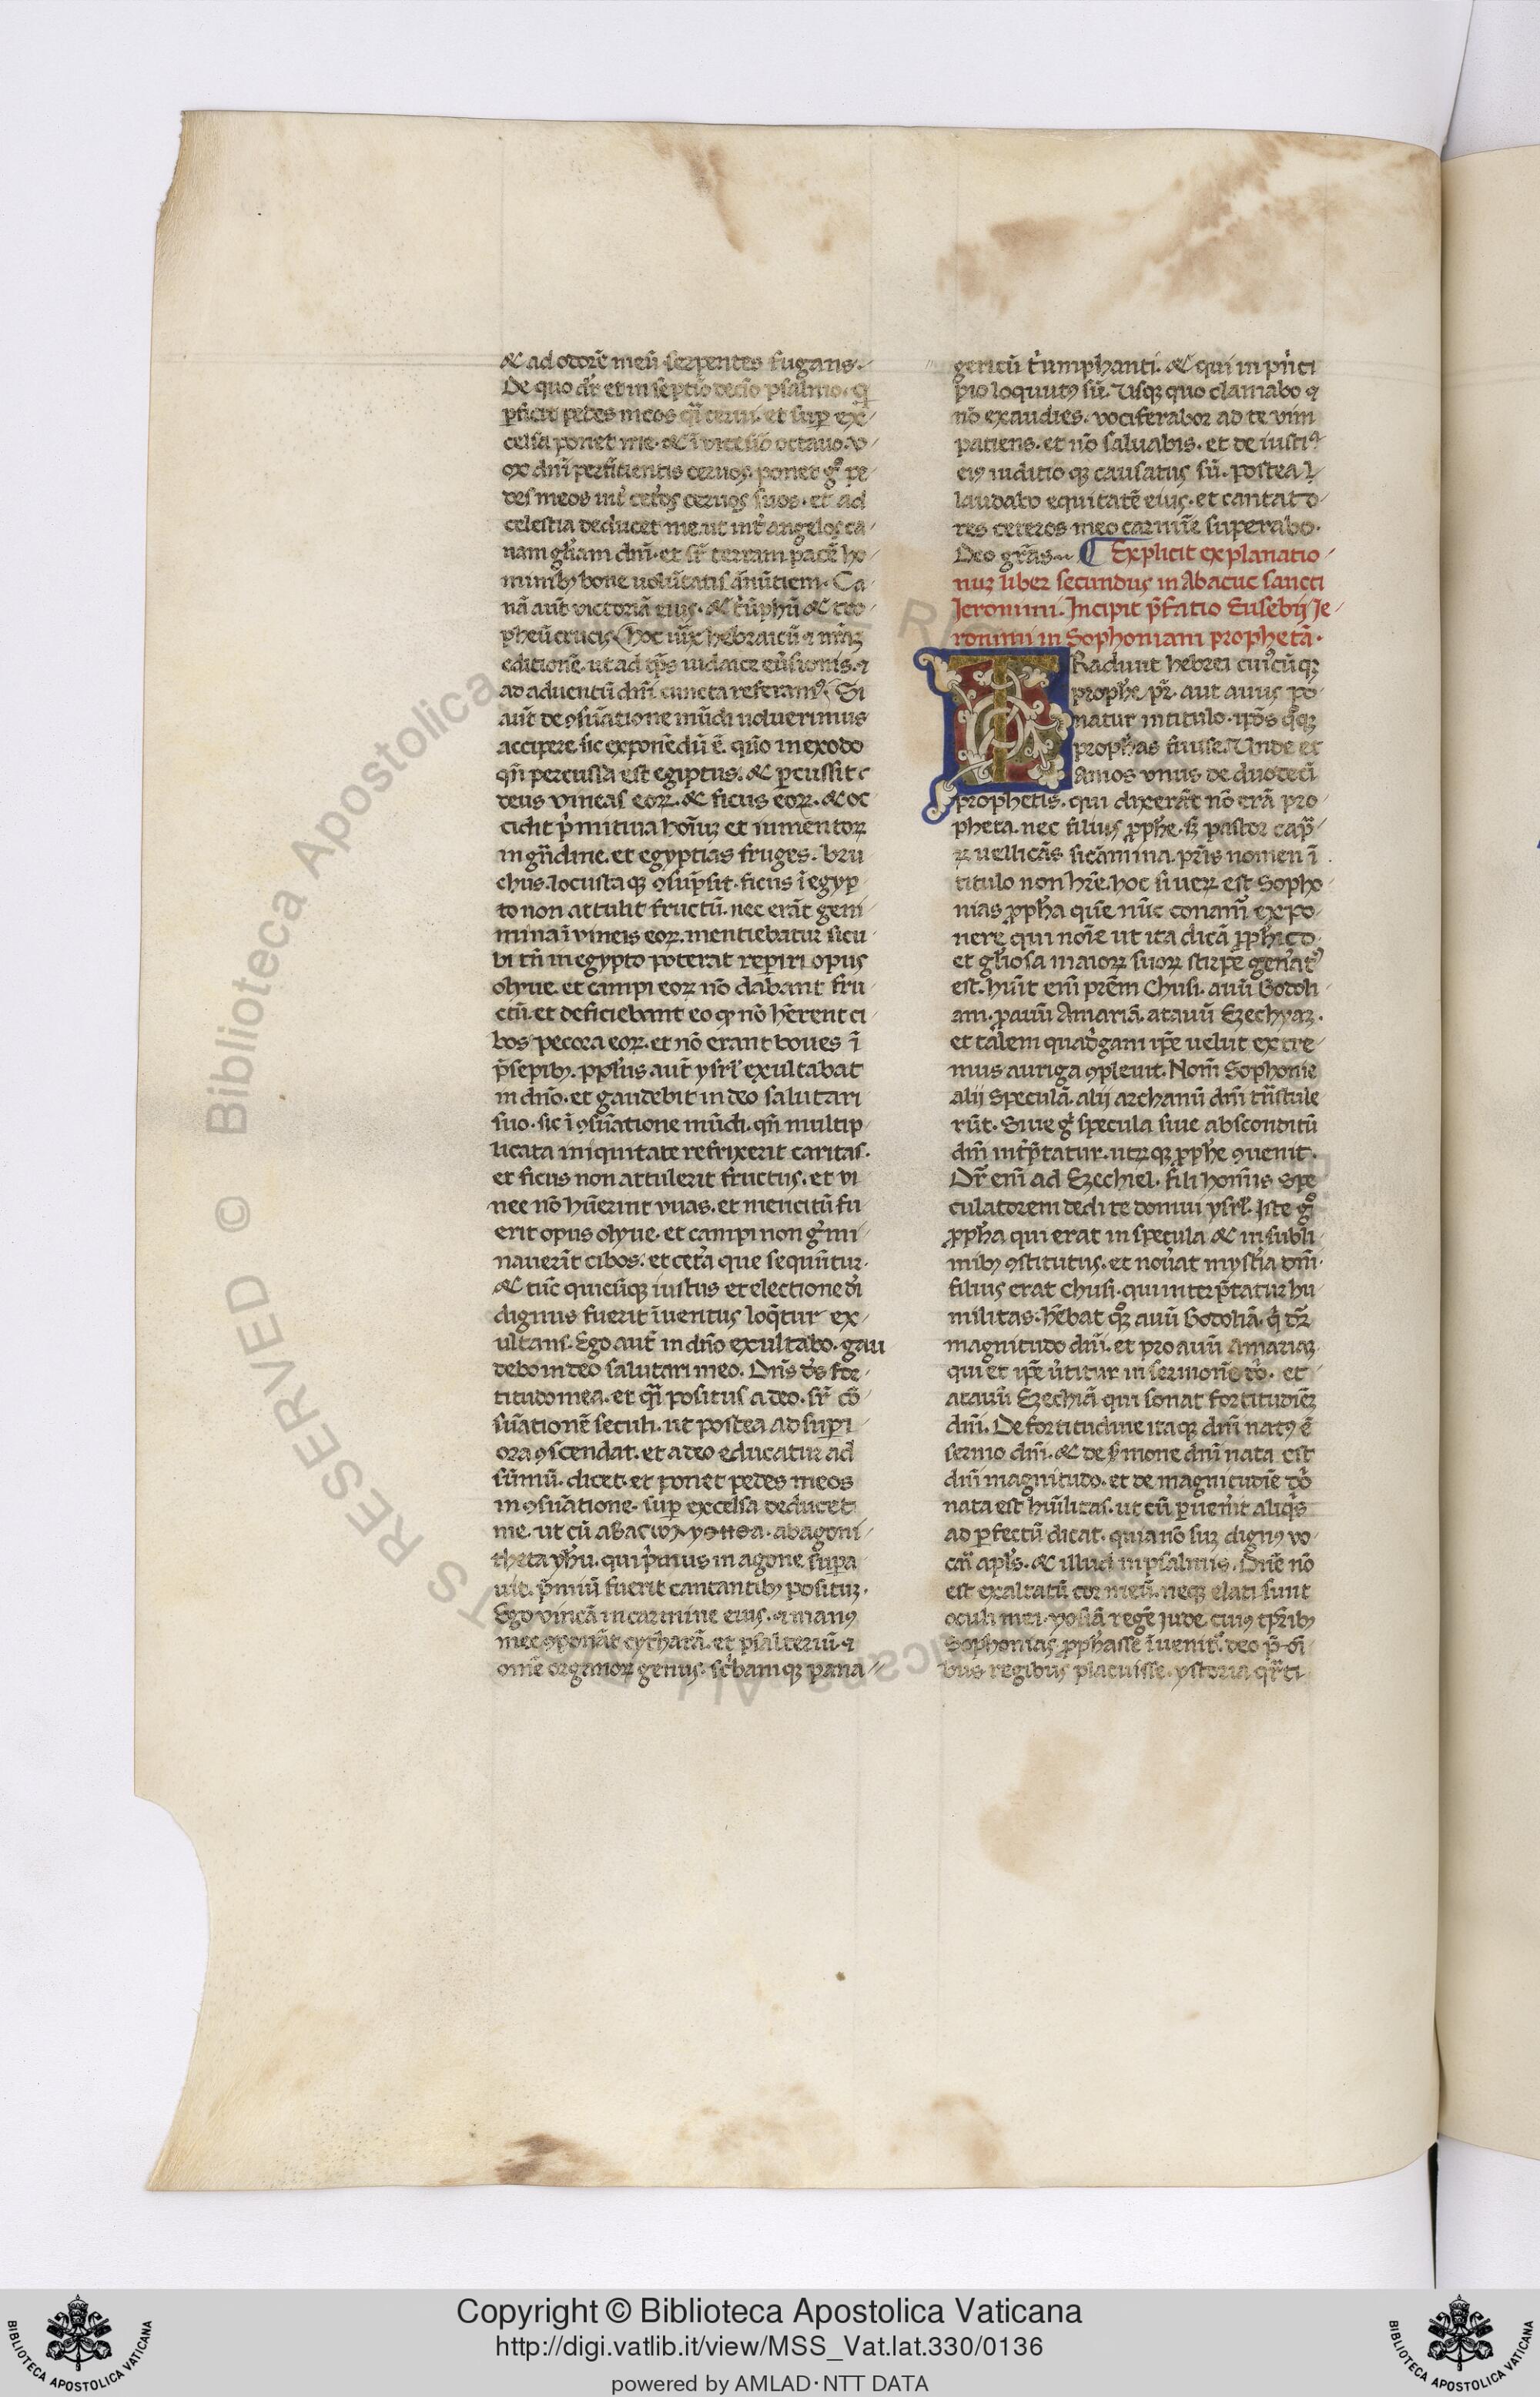 & ad odorē meū serpentes fugans.
De quo dr̄ et in septiō decīo psalmo. q̄
ꝑficit pedes meos q̄ī cerui. et suꝑ ex
celsa ponet me. & ī vicesīo octauo. v
ox dn̄i perfitientis ceruos. ponet gͦ pe
des meos int̄ cet̄os ceruos suos. et ad
celestia deducet me. ut int̄ angelos ca
nam gl̄iam dn̄i. et sr̄ terram pacē ho
minibꝫ bone volūtatis ānūtiem. Ca
nā aut̄ victoriā eius. & t̄ūphū & tro
pheū crucis. Hoc iux̄ hebraicū ⁊ nr̄aꝫ
editionē. ut ad tp̄s iudaice eūsionis. ⁊
ad aduentū dn̄i cuncta referamꝰ. Si
aut̄ de ꝯsūatione mūdi voluerimus
accipere. sic exponēdū ē. quō in exodo
qn̄ percussa est egiptus. & ꝑcussit
deus vineas eoꝝ. & ficus eoꝝ. & oc
cidit p̄mitiua hoīuꝫ et iumentoꝝ
in gn̄dine. et egyptias fruges. bru
chus. locustaqꝫ ꝯsūpsit. ficus ī egyp
to non attulit fructū. nec erāt gem
mina ī vineis eoꝝ. mentiebatur sicu
bi tn̄ in egypto poterat reperiri opus
olyue. et campi eoꝝ nō dabant fru
ctū. et deficiebant eo ꝙ nō hērent ci
bos pecora eoꝝ. et nō erant boues ī
p̄sepibꝫ. pp̄lus aut̄ ysrl̄ exultabat
in dn̄o. et gaudebit in deo salutari
suo. sic ī ꝯsūatione mūdi. qn̄ multip
licata iniquitate refrixerit caritas.
et ficus non attulerit fructus. et vi
nee nō hūerint vuas. et mencitū fu
erit opus olyue. et campi non ḡmi
nauerīt cibos. et cet̄a que sequūtur.
& tūc quicūqꝫ iustus et electione dī
dignus fuerit īuentus loq̄tur ex
ultans. Ego aut̄ in dn̄o exultabo. gau
debo in deo salutari meo. Dn̄s ds̄ for
titudo mea. et q̄ī positus a deo. sr̄ cō
sūationē seculi. ut postea ad suꝑi
ora ꝯscendat. et a deo educatur ad
sūmū. dicet. et ponet pedes meos
in ꝯsūatione. suꝑ excelsa deducet
me. ut cū abagoni
theta yh̄u. qui p̄mus in agone suꝑa
uit. p̄miū fuerit cantantibꝫ posituꝫ.
Ego vincā in carmine eius. ⁊ manꝰ
mee ꝯponāt cytharā. et psalteriū. ⁊
om̄e organoꝝ genus. sc̄bamqꝫ pana
gericū t̄umphanti. & qui in pn̄ci
pio loquutꝰ sū. Usqꝫ quo clamabo ⁊
nō exaudies. vociferabor ad te vim
patiens. et nō saluabis. et de iusti
eiꝰ iuditio qꝫ causatus sū. postea
laudabo equitatē eius. et cantato
res ceteros meo carmīe superabo.
Deo gr̄as. ¶ Explicit explanatio
nuꝫ liber secundus in Abacuc sancti
Jeronimi. Incipit p̄fatio Eusebij Je
ronimi in Sophoniam prophetā.
TRadunt hebrei cuiꝰcūqꝫ
proph̄e pr̄. aut auus po
natur in titulo. ip̄os qͦqꝫ
proph̄as fuisse. Unde et
Amos vnus de duodecī
prophetis. qui dixerāt nō erā pro
pheta. nec filius ꝓph̄e. sꝫ pastor capr̄
ꝝ vellicās sicāmina. pr̄is nomen ī
titulo non hr̄e. hoc si veꝝ est Sopho
nias ꝓph̄a quē nūc conam̄ expo
nere. qui noīe ut ita dicā ꝓph̄ico
et gl̄iosa maioꝝ suoꝝ stirpe gen̄atꝰ
est. hūit em̄ prēm Chusi. auū Godoli
am. ꝓauū Amariā. atauū Ezechyaꝫ.
et talem quad̄gam ip̄e uelut extre
mus auriga ꝯpleuit. Nom̄ Sophonie
alij Speculā. alij archanū dn̄i trāstule
rūt. Siue gͦ specula siue absconditū
dn̄i int̄p̄tatur. utꝝqꝫ ꝓph̄e ꝯuenit.
Dr̄ em̄ ad Ezechiel. fili hoīnis Spe
culatorem dedi te domui ysrl̄. Iste gͦ
ꝓph̄a qui erat in specula & in subli
mibꝫ ꝯstitutus. et nou̾at myst̄ia dn̄i.
filius erat Chusi. qui interp̄tatur hu
militas. hēbat qͦqꝫ auū Godoliā. q̄ dr̄
magnitudo dn̄i. et pro auū Amariaꝫ
qui et ip̄e u̾titur in sermonē dō. et
atauū Ezechiā qui sonat fortitudīeꝫ
dn̄i. De fortitudine itaqꝫ dn̄i natꝰ ē
sermo dn̄i. & de s̄mone dn̄i nata est
dn̄i magnitudo. et de magnitudīe dō
nata est hūilitas. ut cū ꝑuenit aliqͥs
ad ꝑfectū dicat. quia nō suꝫ dignꝰ vo
cari apl̄s. & illud in psalmis. Dn̄e nō
est exaltatū cor meū. neqꝫ elati sunt
oculi mei. yosiā regē Jude. cuiꝰ tp̄ribꝫ
Sophonias ꝓph̄asse īuenitꝰ. deo p̄ oī
bus regibus placuisse. ystoria
Copyright © Biblioteca Apostolica Vaticana
http://digi.vatlib.it/view/MSS_Vat.lat.330/0136
powered by AMLAD·NTT DATA
BIBLIOTECA APOSTOLICA VATICANA
BIBLIOTECA APOSTOLICA VATICANA